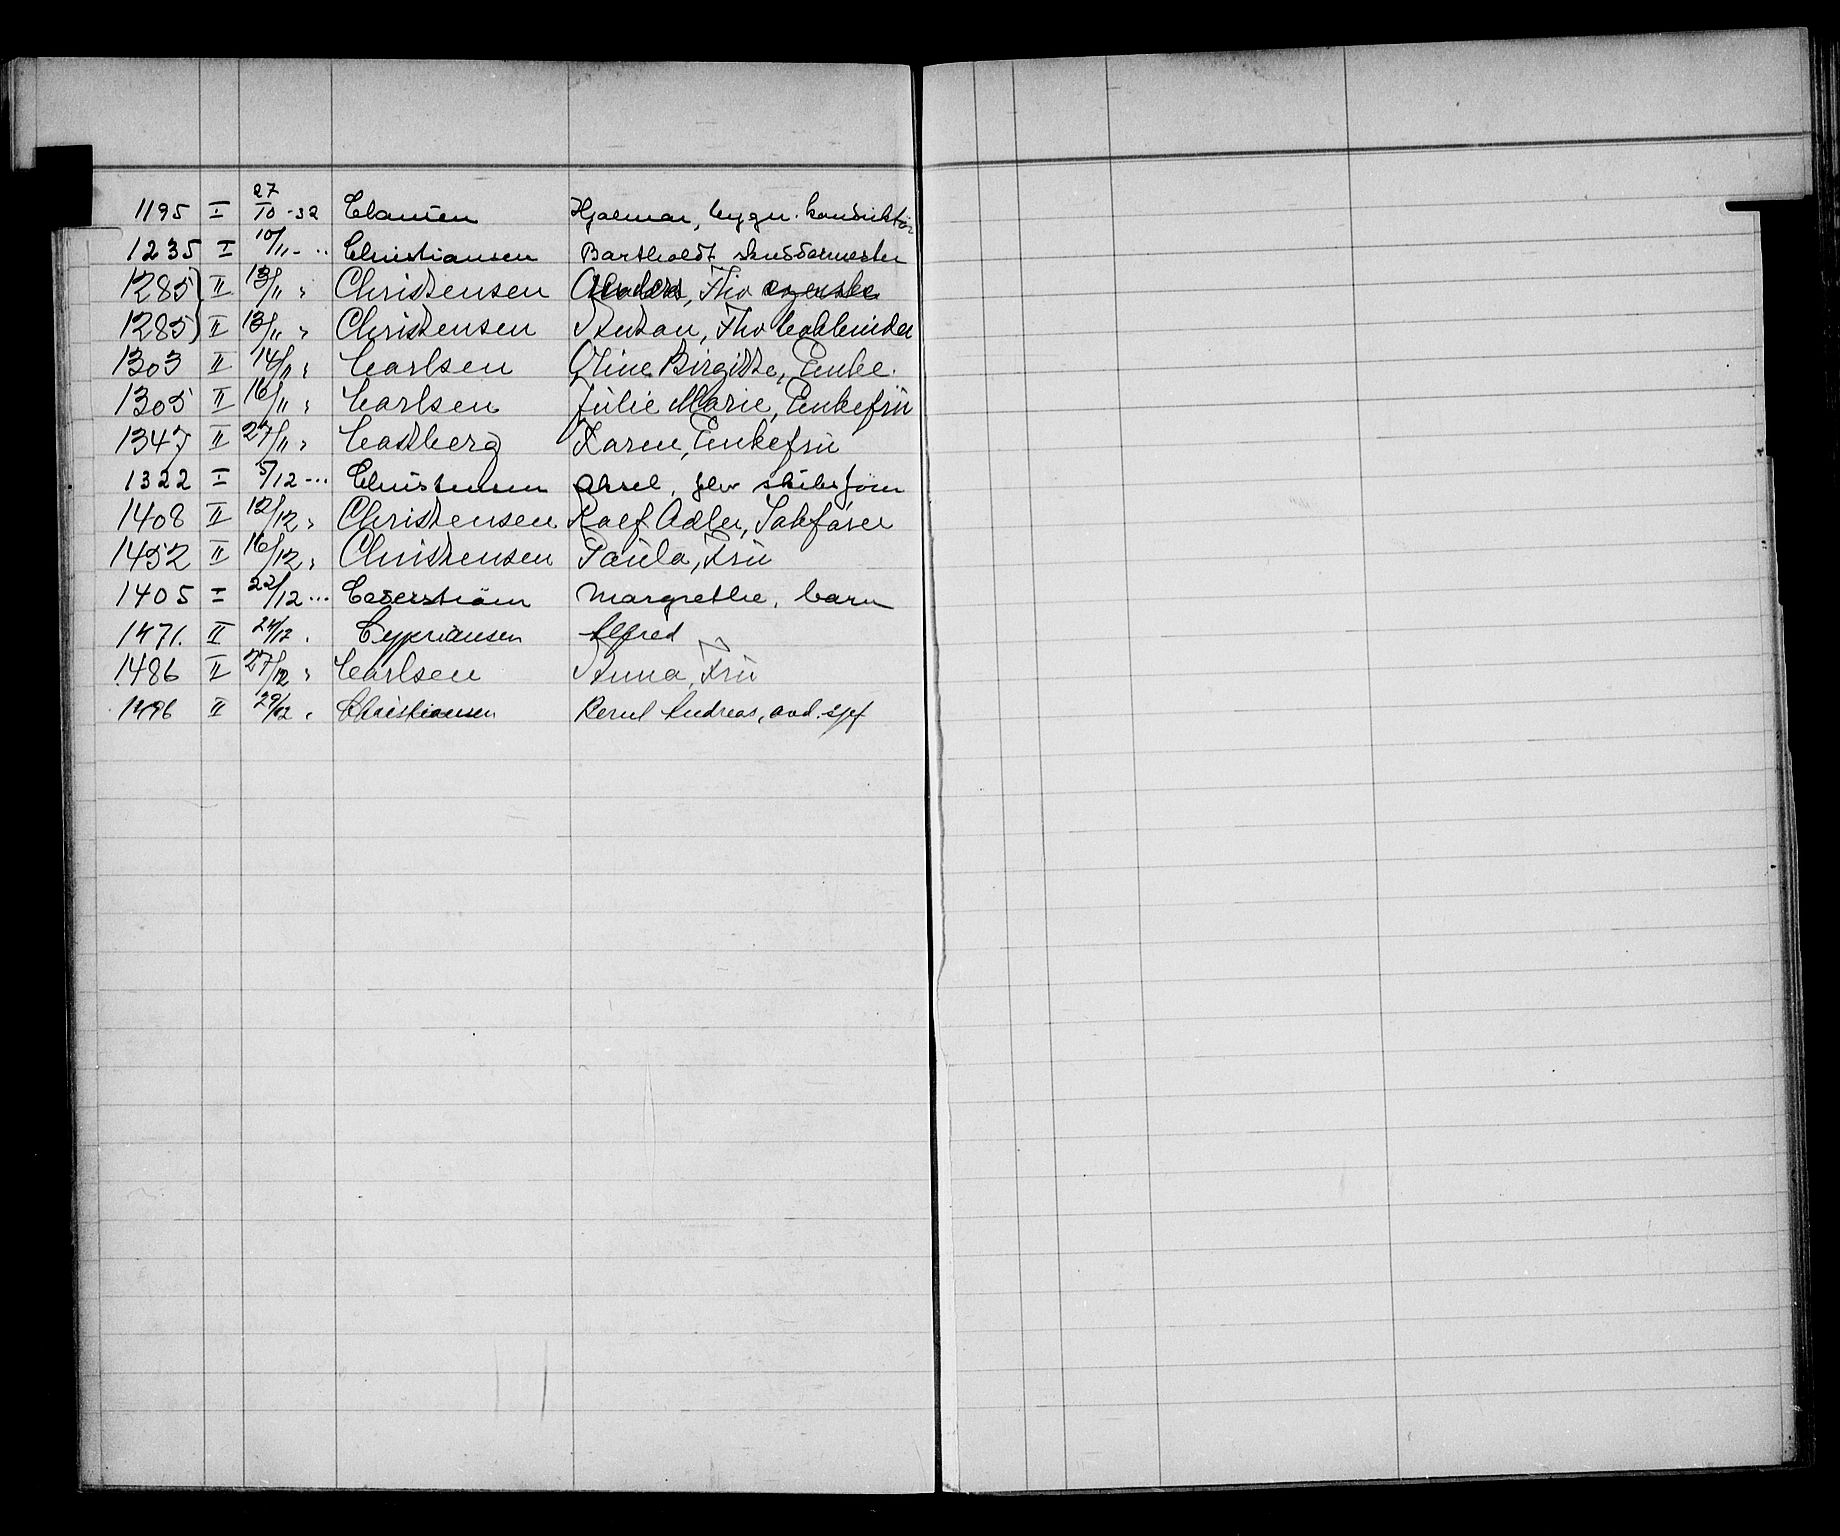 1195 I 27/10 -32 Clausen Hjalmar, bygn. konduktør
1235 I 10/11 - .. Christiansen Bartholdt skreddermester
1285 II 13/11 " Christensen Anders, Fhv
1285 II 13/11 " Christensen Anton, Fhv
1303 II 14/11 " Carlsen Oline Birgitte, Enke.
1305 II 16/11 " Carlsen Julie Marie, Enkefru
1347 II 27/11 " Castberg Karen, Enkefru
1322 I 5/12 - .. Christensen Aksel, fhv
1408 II 12/12 " Christensen Roef Adler, Sakfører
1452 II 16/12 " Christensen Paula, Fru
1405 I 22/12 ... Cederstrøm Margrethe, barn
1471. II 24/12 . Cypriansen Alfred
1486 II 27/12 " Carlsen Anna, Fru
1496 II 29/12 " Christiansen Bernt Andreas, avd. sjef